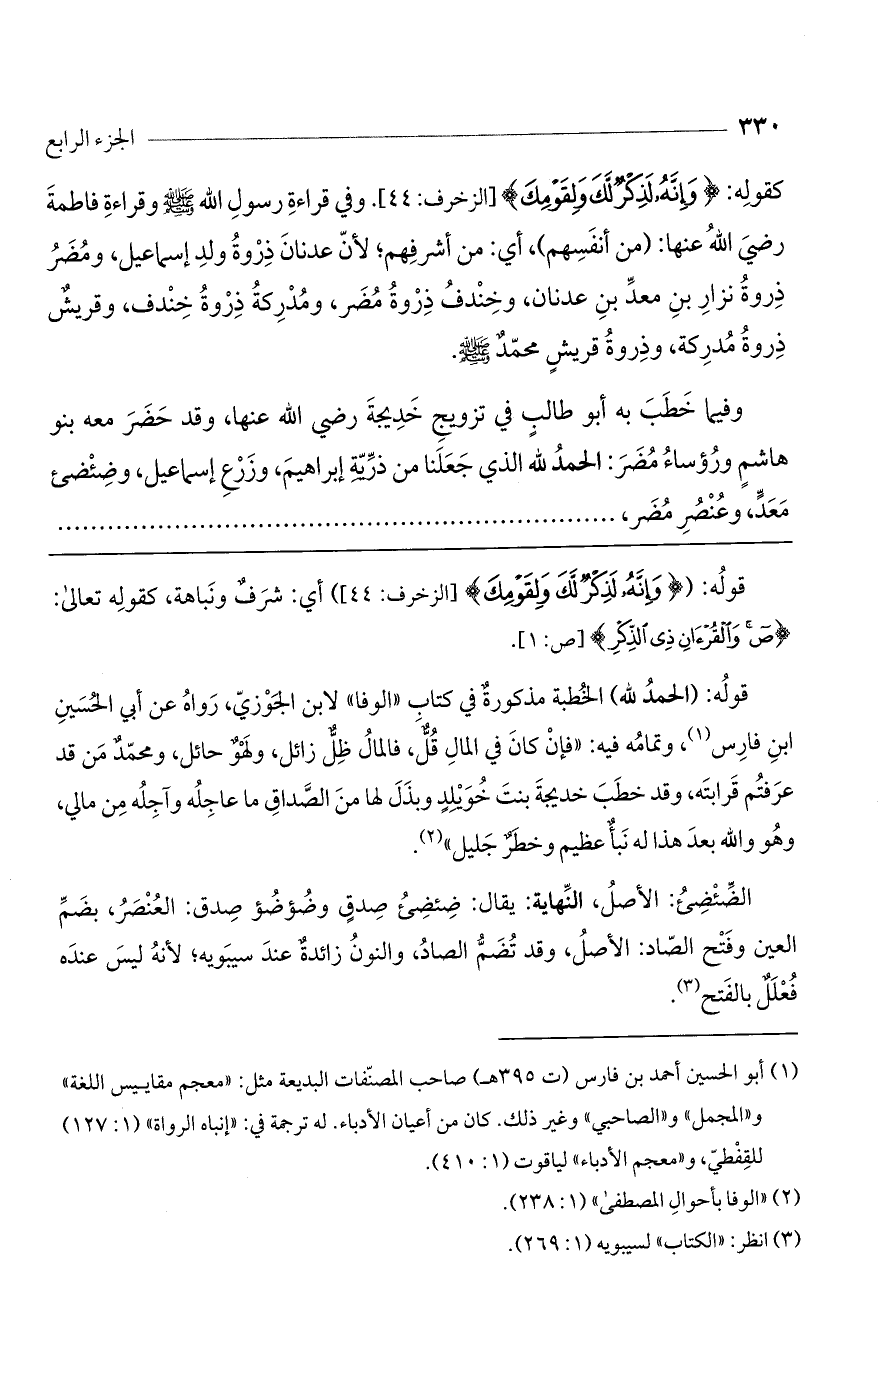 ٣٣٠ الجزء الرابع
كقولِه: ﴿وَإِنَّهُۥ لَذِكْرٌ لَّكَ وَلِقَوْمِكَ﴾ [الزخرف: ٤٤]. وفي قراءةِ رسولِ الله ﷺ وقراءةِ فاطمةَ
رضيَ اللهُ عنها: (من أنفَسِهم)، أي: من أشرفِهم؛ لأنّ عدنانَ ذِرْوةُ ولدِ إسماعيل، ومُضَرُ
ذِروةُ نزارِ بنِ معدِّ بنِ عدنان، وخِنْدفُ ذِرْوةُ مُضَر، ومُدْرِكةُ ذِرْوةُ خِنْدف، وقريشٌ
ذِروةُ مُدرِكة، وذِروةُ قريشٍ محمّدٌ ﷺ.
وفيما خَطَبَ به أبو طالبٍ في تزويجِ خَدِيجةَ رضي الله عنها، وقد حَضَرَ معه بنو
هاشمٍ ورُؤساءُ مُضَرَ: الحمدُ لله الذي جَعَلَنا من ذرِّيّةِ إبراهيمَ، وزَرْعِ إسماعيل، وضِئْضئ
مَعَدٍّ، وعُنْصُرِ مُضَر، ..................................................................
قولُه: (﴿وَإِنَّهُۥ لَذِكْرٌ لَّكَ وَلِقَوْمِكَ﴾ [الزخرف: ٤٤]) أي: شرَفٌ ونَباهة، كقولِه تعالىٰ:
﴿صٓ ۚ وَٱلْقُرْءَانِ ذِى ٱلذِّكْرِ﴾ [ص: ١].
قولُه: (الحمدُ لله) الخُطبة مذكورةٌ في كتابِ «الوفا» لابن الجَوْزيّ، رَواهُ عن أبي الحُسَينِ
ابنِ فارِس(١)، وتمامُه فيه: «فإنْ كانَ في المالِ قُلٌّ، فالمالُ ظِلٌّ زائل، ولَهْوٌ حائل، ومحمّدٌ مَن قد
عرَفتُم قَرابتَه، وقد خطَبَ خديجةَ بنتَ خُوَيْلِدٍ وبذَلَ لها منَ الصَّداقِ ما عاجِلُه وآجِلُه مِن مالي،
وهُو والله بعدَ هذا له نَبأٌ عظيم وخطَرٌ جَليل»(٢).
الضِّئْضِئُ: الأصلُ، النِّهاية: يقال: ضِئضِئُ صِدقٍ وضُؤضُؤ صِدق: العُنْصَرُ، بضَمِّ
العين وفَتْح الصّاد: الأصلُ، وقد تُضَمُّ الصادُ، والنونُ زائدةٌ عندَ سيبَويه؛ لأنهُ ليسَ عندَه
فُعْلَلٌ بالفَتح(٣).
(١) أبو الحسين أحمد بن فارس (ت ٣٩٥هـ) صاحب المصنّفات البديعة مثل: «معجم مقاييس اللغة»
و«المجمل» و«الصاحبي» وغير ذلك. كان من أعيان الأدباء. له ترجمة في: «إنباه الرواة» (١: ١٢٧)
للقِفْطيّ، و«معجم الأدباء» لياقوت (١: ٤١٠).
(٢) «الوفا بأحوالِ المصطفىٰ» (١: ٢٣٨).
(٣) انظر: «الكتاب» لسيبويه (١: ٢٦٩).